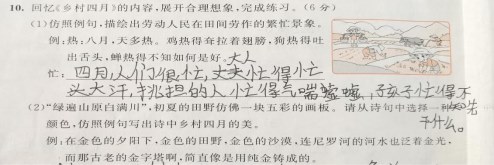 10. 回忆《乡村四月》的内容,展开合理想象,完成练习。(6分)
(1)仿照例句,描绘出劳动人民在田间劳作的繁忙景象。
例:热:八月,天多热。鸡热得耷拉着翅膀,狗热得吐
出舌头,蝉热得不知如何是好。大人
忙:四月,人们很忙,丈夫忙得忙
头大汗,挑担的人忙得气喘嘘嘘,孩子忙得不知先
干什么。
(2)“绿遍山原白满川”,初夏的田野仿佛一块五彩的画板。请从诗句中选择一种
颜色,仿照例句写出诗中乡村四月的美。
例:在金色的夕阳下,金色的田野,金色的沙漠,连尼罗河的河水也泛着金光,
而那古老的金字塔啊,简直像是用纯金铸成的。